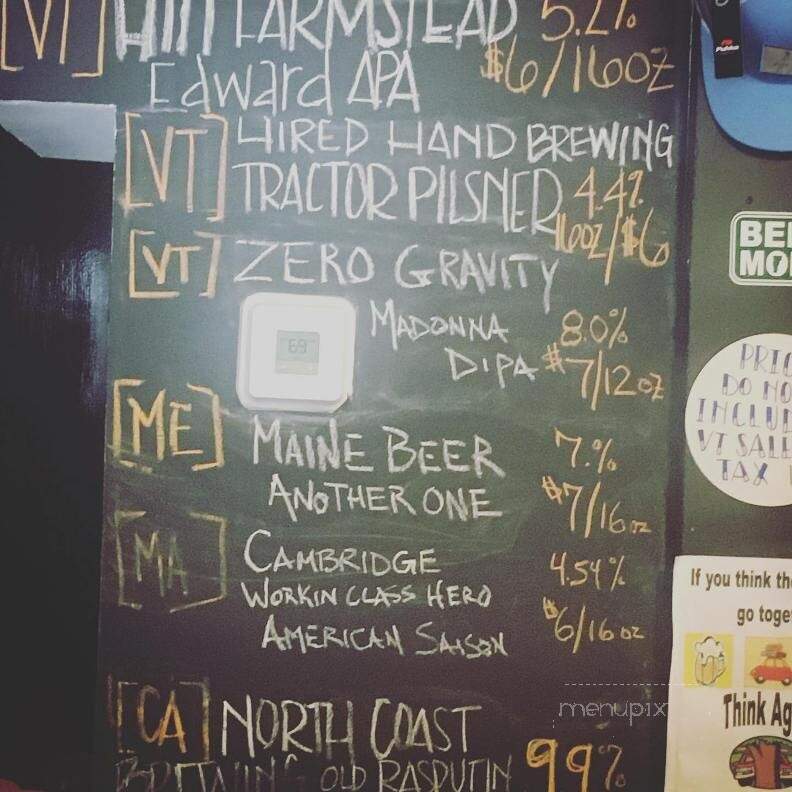 [VT] Hill FARMSTEAD 5.2%
Edward APA $6/16oz
[VT] HIRED HAND BREWING
TRACTOR PILSNER 4.4%
16oz/$6
[VT] ZERO GRAVITY
MADONNA 8.0%
DIPA $7/12oz
69
[ME] MAINE BEER 7.%
ANOTHER ONE $7/16oz
[MA] CAMBRIDGE 4.54%
WORKIN CLASS HERO
AMERICAN SAISON $6/16oz
[CA] NORTH COAST
BREWING OLD RASPUTIN 99%
DO NO
INCLUD
VT SALE
TAX
If you think th
go toge
Think Ag
menupix